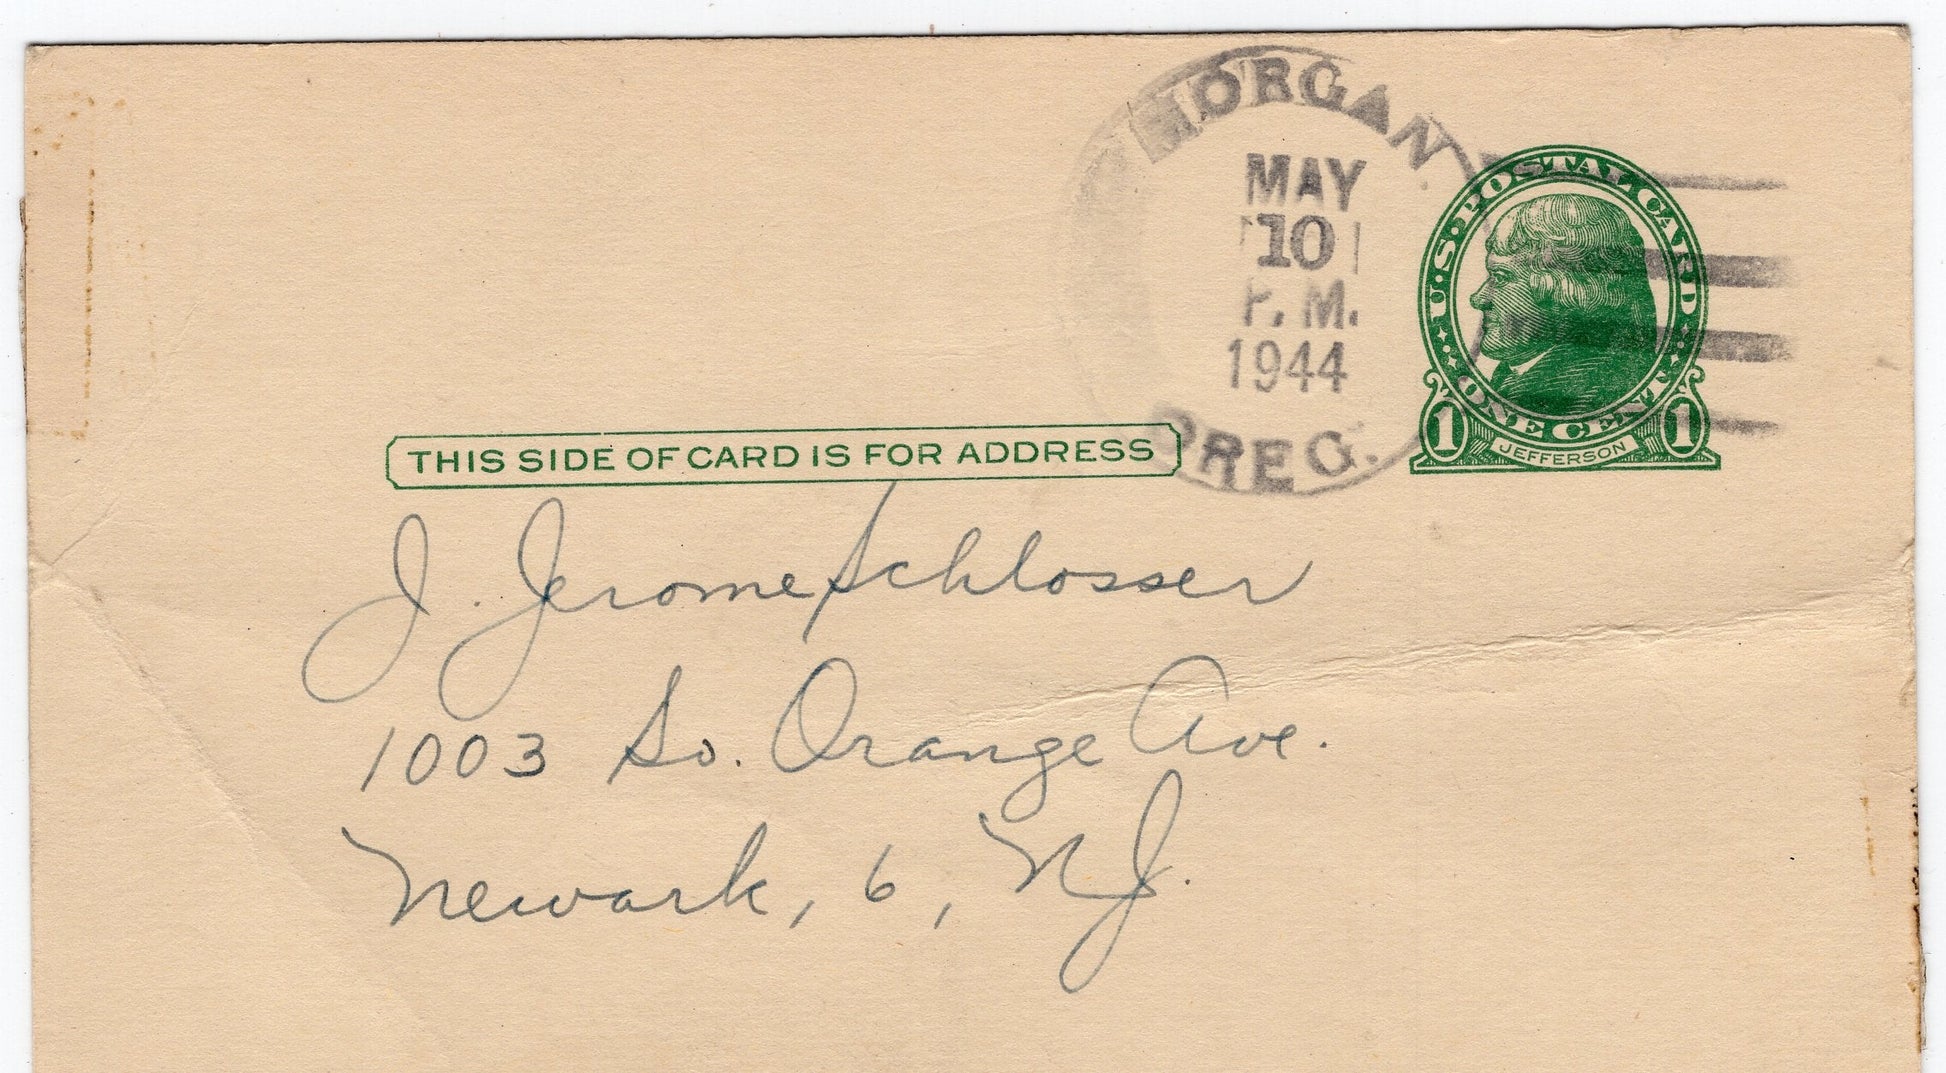 MORGAN
MAY
10
P. M.
1944
OREG.
U.S. POSTAL CARD
ONE CENT
1 JEFFERSON 1
THIS SIDE OF CARD IS FOR ADDRESS
J. Jerome Schlosser
1003 So. Orange Ave.
Newark, 6, N.J.